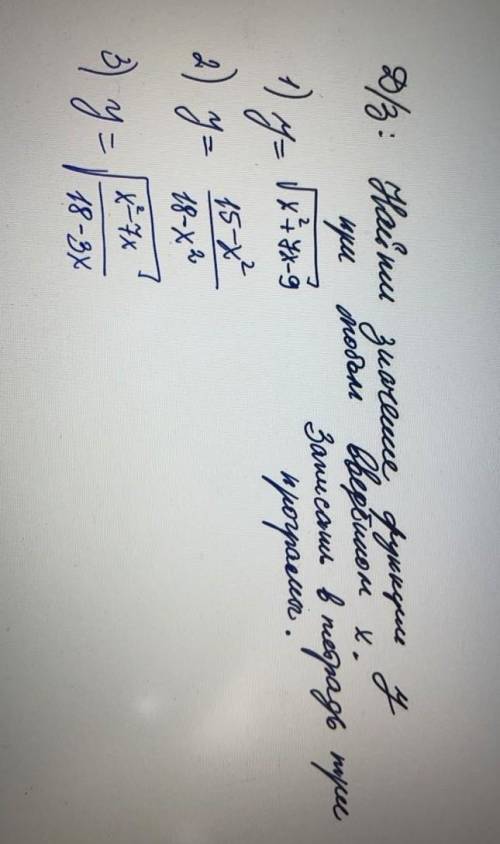 Д/З: Найти значение функции y
при любом введённом x.
Записать в тетрадь три
программы.
1) y = √(x²+7x-9)
2) y = (15-x²)/(18-x²)
3) y = √((x²-7x)/(18-3x))